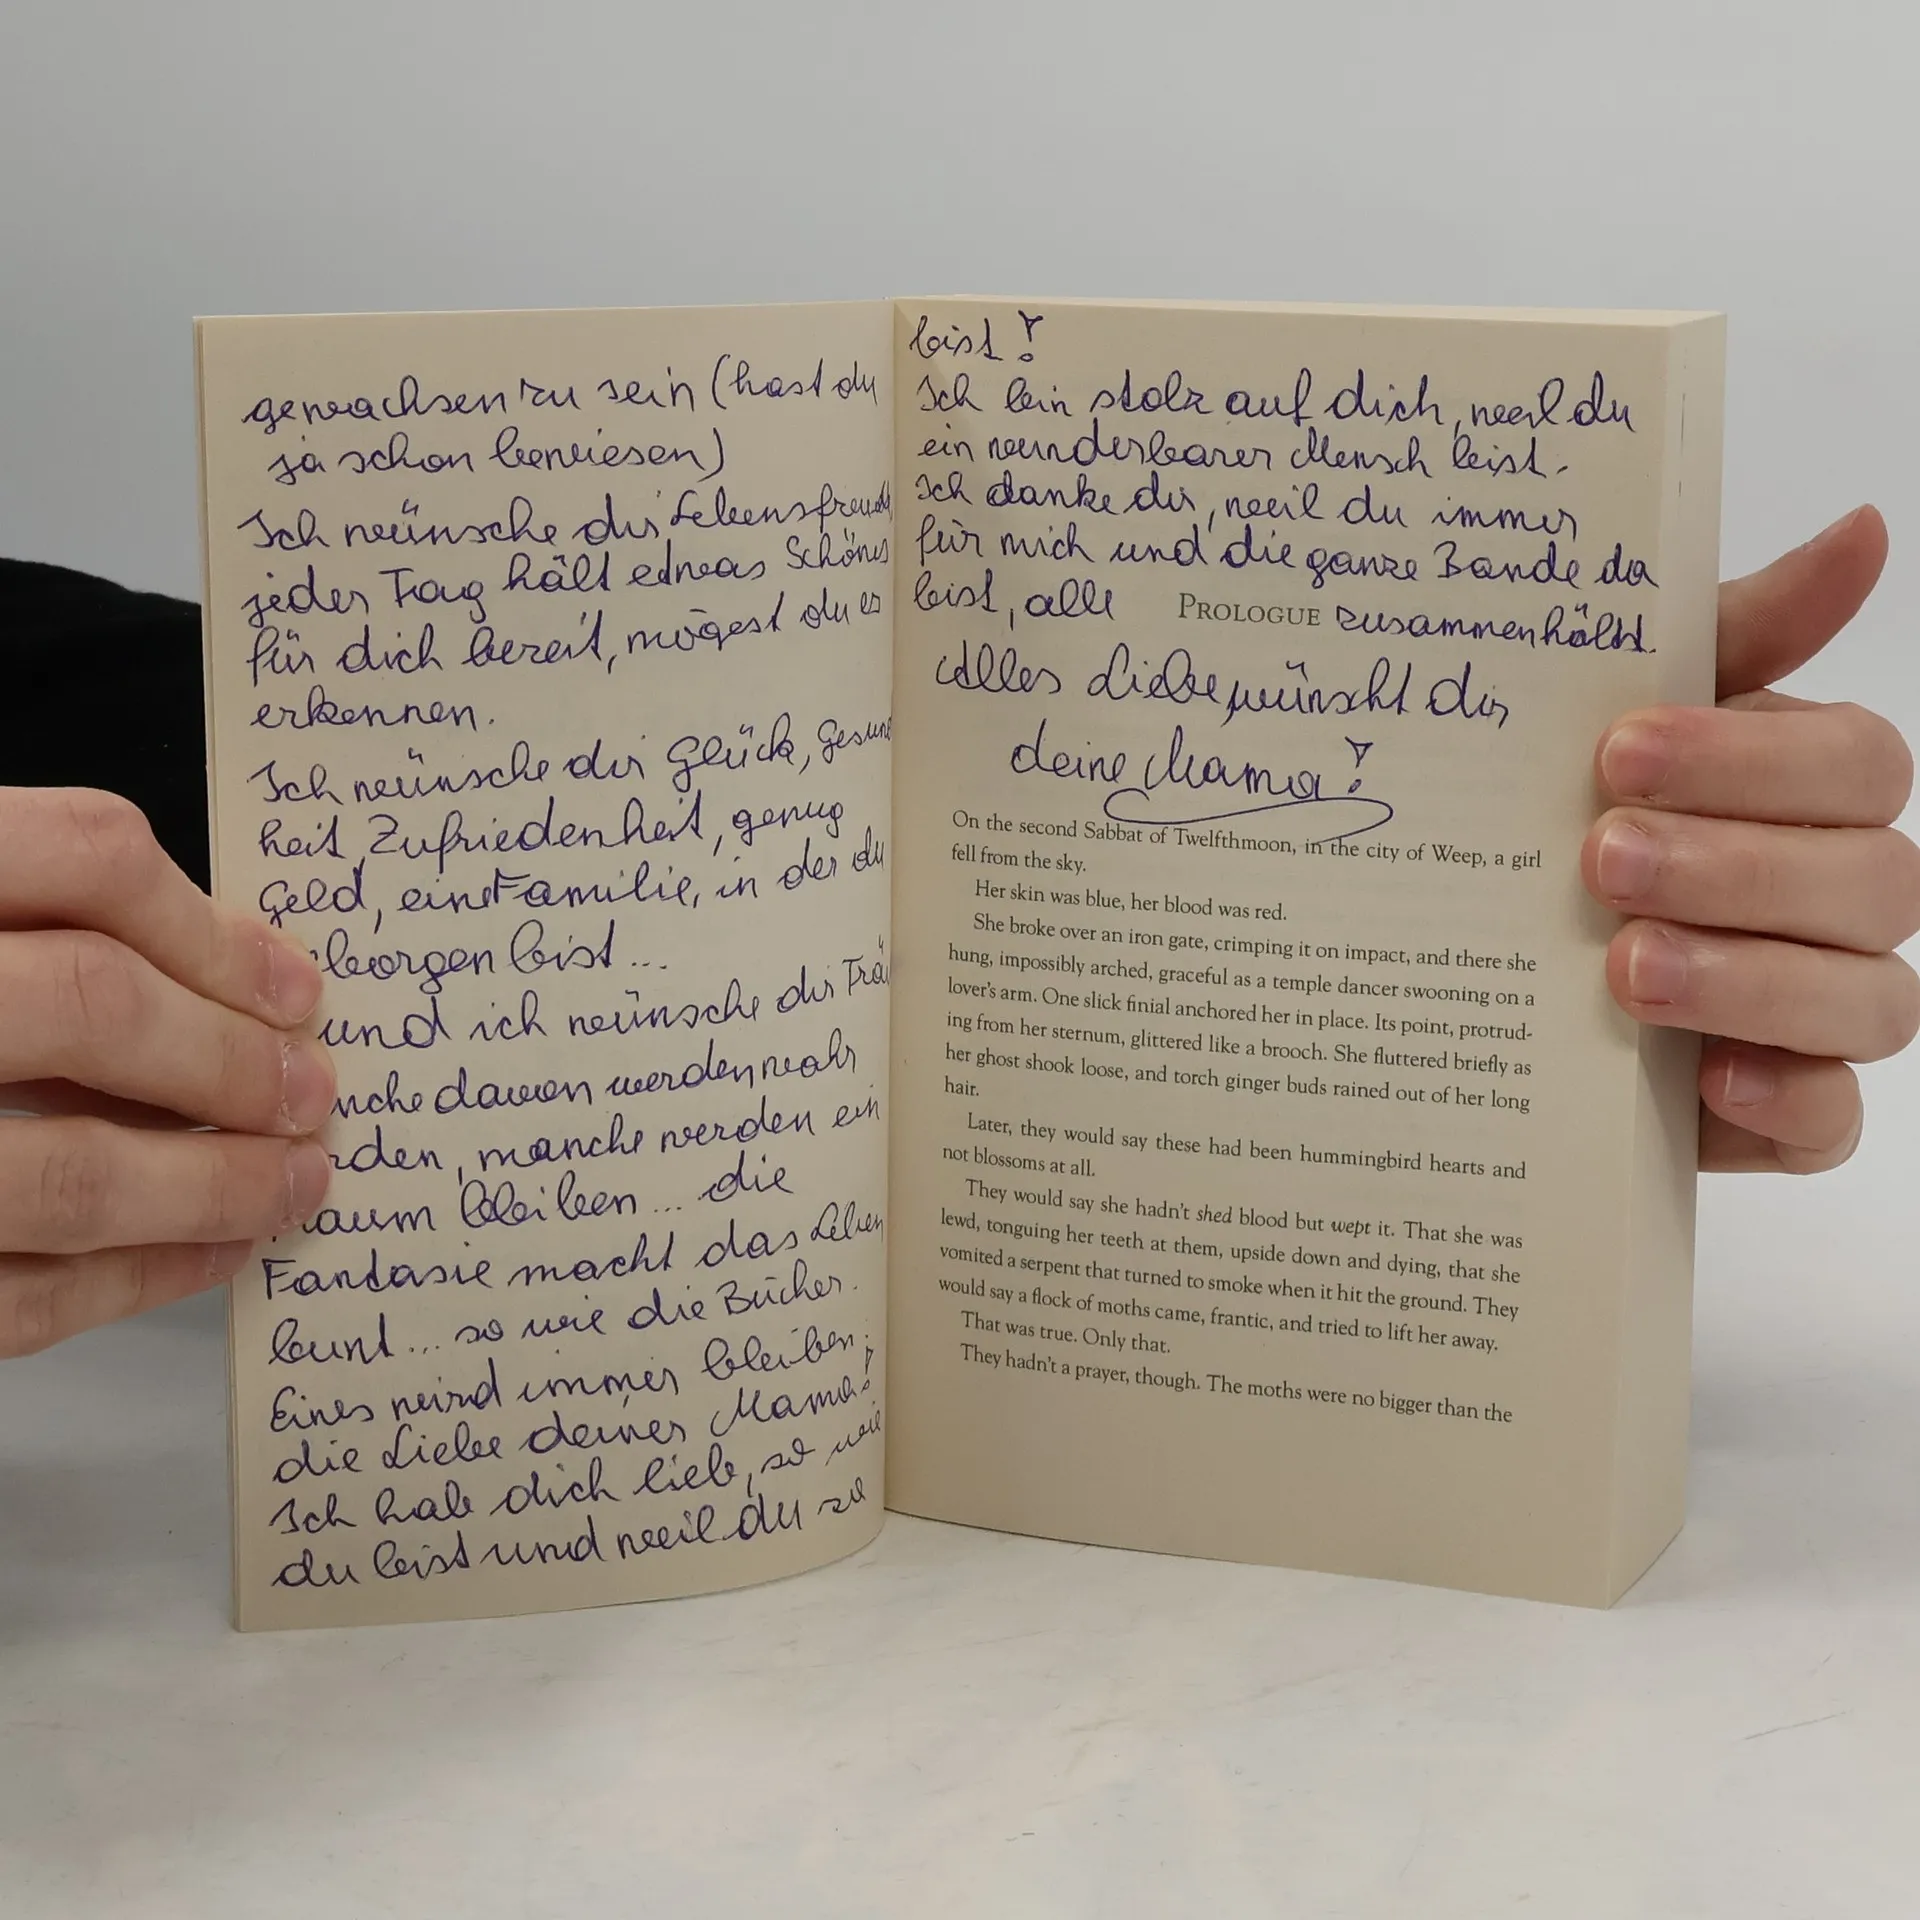 gewachsen zu sein (hast du
ja schon bewiesen)
Ich wünsche dir Lebensfreude,
jeder Tag hält etwas Schönes
für dich bereit, mögest du es
erkennen.
Ich wünsche dir Glück, Gesund
heit, Zufriedenheit, genug
Geld, eine Familie, in der du
borgen bist...
und ich wünsche dir Träu
nche davon werden wahr
rden, manche werden ein
raum bleiben... die
Fantasie macht das Leben
bunt... so wie die Bücher.
Eines wird immer bleiben:
die Liebe deiner Mama!
Ich hab dich lieb, so wie
du bist und weil du so
bist!
Ich bin stolz auf dich, weil du
ein wunderbarer Mensch bist.
Ich danke dir, weil du immer
für mich und die ganze Bande da
bist, alle PROLOGUE zusammenhältst.
Alles Liebe, wünscht dir
deine Mama!
On the second Sabbat of Twelfthmoon, in the city of Weep, a girl
fell from the sky.
Her skin was blue, her blood was red.
She broke over an iron gate, crimping it on impact, and there she
hung, impossibly arched, graceful as a temple dancer swooning on a
lover's arm. One slick finial anchored her in place. Its point, protrud-
ing from her sternum, glittered like a brooch. She fluttered briefly as
her ghost shook loose, and torch ginger buds rained out of her long
hair.
Later, they would say these had been hummingbird hearts and
not blossoms at all.
They would say she hadn't shed blood but wept it. That she was
lewd, tonguing her teeth at them, upside down and dying, that she
vomited a serpent that turned to smoke when it hit the ground. They
would say a flock of moths came, frantic, and tried to lift her away.
That was true. Only that.
They hadn't a prayer, though. The moths were no bigger than the